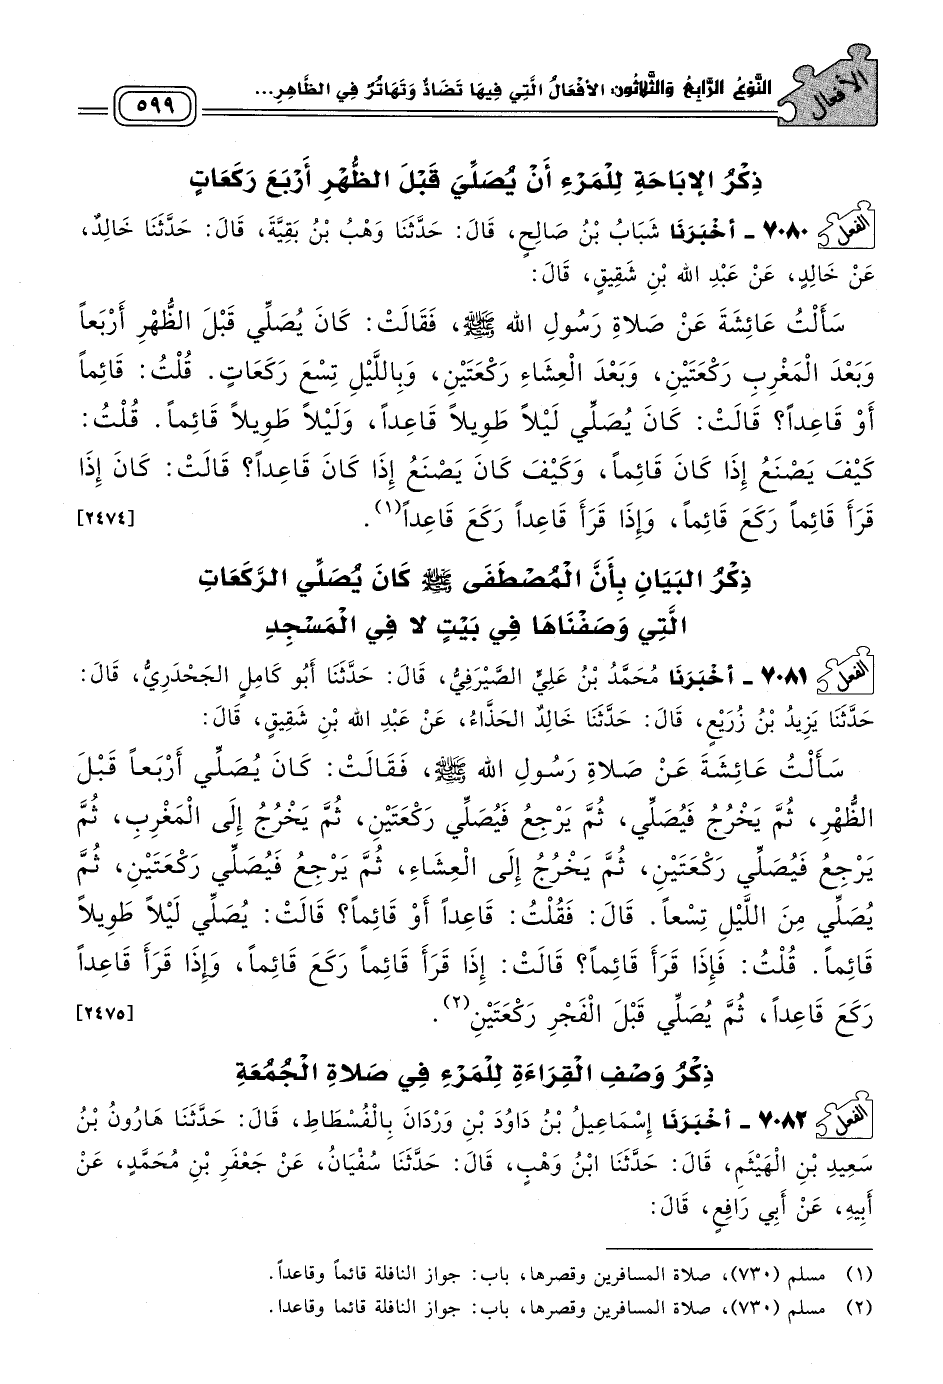 الأفعال
النَّوْعُ الرَّابِعُ وَالثَّلَاثُون: الأَفْعَالُ الَّتِي فِيهَا تَضَادٌ وَتَهَاتُرٌ فِي الظَّاهِرِ...
٥٩٩
ذِكْرُ الإِبَاحَةِ لِلْمَرْءِ أَنْ يُصَلِّيَ قَبْلَ الظُّهْرِ أَرْبَعَ رَكَعَاتٍ
الفعل ٧٠٨٠ - أَخْبَرَنَا شَبَابُ بْنُ صَالِحٍ، قَالَ: حَدَّثَنَا وَهْبُ بْنُ بَقِيَّةَ، قَالَ: حَدَّثَنَا خَالِدٌ،
عَنْ خَالِدٍ، عَنْ عَبْدِ الله بْنِ شَقِيقٍ، قَالَ:
سَأَلْتُ عَائِشَةَ عَنْ صَلاةِ رَسُولِ الله ﷺ، فَقَالَتْ: كَانَ يُصَلِّي قَبْلَ الظُّهْرِ أَرْبَعاً
وَبَعْدَ الْمَغْرِبِ رَكْعَتَيْنِ، وَبَعْدَ الْعِشَاءِ رَكْعَتَيْنِ، وَبِاللَّيْلِ تِسْعَ رَكَعَاتٍ. قُلْتُ: قَائِماً
أَوْ قَاعِداً؟ قَالَتْ: كَانَ يُصَلِّي لَيْلاً طَوِيلاً قَاعِداً، وَلَيْلاً طَوِيلاً قَائِماً. قُلْتُ:
كَيْفَ يَصْنَعُ إِذَا كَانَ قَائِماً، وَكَيْفَ كَانَ يَصْنَعُ إِذَا كَانَ قَاعِداً؟ قَالَتْ: كَانَ إِذَا
قَرَأَ قَائِماً رَكَعَ قَائِماً، وَإِذَا قَرَأَ قَاعِداً رَكَعَ قَاعِداً(١). [٢٤٧٤]
ذِكْرُ الْبَيَانِ بِأَنَّ الْمُصْطَفَى ﷺ كَانَ يُصَلِّي الرَّكَعَاتِ
الَّتِي وَصَفْنَاهَا فِي بَيْتٍ لا فِي الْمَسْجِدِ
الفعل ٧٠٨١ - أَخْبَرَنَا مُحَمَّدُ بْنُ عَلِيٍّ الصَّيْرَفِيُّ، قَالَ: حَدَّثَنَا أَبُو كَامِلٍ الجَحْدَرِيُّ، قَالَ:
حَدَّثَنَا يَزِيدُ بْنُ زُرَيْعٍ، قَالَ: حَدَّثَنَا خَالِدٌ الحَذَّاءُ، عَنْ عَبْدِ الله بْنِ شَقِيقٍ، قَالَ:
سَأَلْتُ عَائِشَةَ عَنْ صَلاةِ رَسُولِ الله ﷺ، فَقَالَتْ: كَانَ يُصَلِّي أَرْبَعاً قَبْلَ
الظُّهْرِ، ثُمَّ يَخْرُجُ فَيُصَلِّي، ثُمَّ يَرْجِعُ فَيُصَلِّي رَكْعَتَيْنِ، ثُمَّ يَخْرُجُ إِلَى الْمَغْرِبِ، ثُمَّ
يَرْجِعُ فَيُصَلِّي رَكْعَتَيْنِ، ثُمَّ يَخْرُجُ إِلَى الْعِشَاءِ، ثُمَّ يَرْجِعُ فَيُصَلِّي رَكْعَتَيْنِ، ثُمَّ
يُصَلِّي مِنَ اللَّيْلِ تِسْعاً. قَالَ: فَقُلْتُ: قَاعِداً أَوْ قَائِماً؟ قَالَتْ: يُصَلِّي لَيْلاً طَوِيلاً
قَائِماً. قُلْتُ: فَإِذَا قَرَأَ قَائِماً؟ قَالَتْ: إِذَا قَرَأَ قَائِماً رَكَعَ قَائِماً، وَإِذَا قَرَأَ قَاعِداً
رَكَعَ قَاعِداً، ثُمَّ يُصَلِّي قَبْلَ الْفَجْرِ رَكْعَتَيْنِ(٢). [٢٤٧٥]
ذِكْرُ وَصْفِ الْقِرَاءَةِ لِلْمَرْءِ فِي صَلاةِ الْجُمُعَةِ
الفعل ٧٠٨٢ - أَخْبَرَنَا إِسْمَاعِيلُ بْنُ دَاوُدَ بْنِ وَرْدَانَ بِالْفُسْطَاطِ، قَالَ: حَدَّثَنَا هَارُونُ بْنُ
سَعِيدِ بْنِ الْهَيْثَمِ، قَالَ: حَدَّثَنَا ابْنُ وَهْبٍ، قَالَ: حَدَّثَنَا سُفْيَانُ، عَنْ جَعْفَرِ بْنِ مُحَمَّدٍ، عَنْ
أَبِيهِ، عَنْ أَبِي رَافِعٍ، قَالَ:
(١) مسلم (٧٣٠)، صلاة المسافرين وقصرها، باب: جواز النافلة قائماً وقاعداً.
(٢) مسلم (٧٣٠)، صلاة المسافرين وقصرها، باب: جواز النافلة قائما وقاعدا.